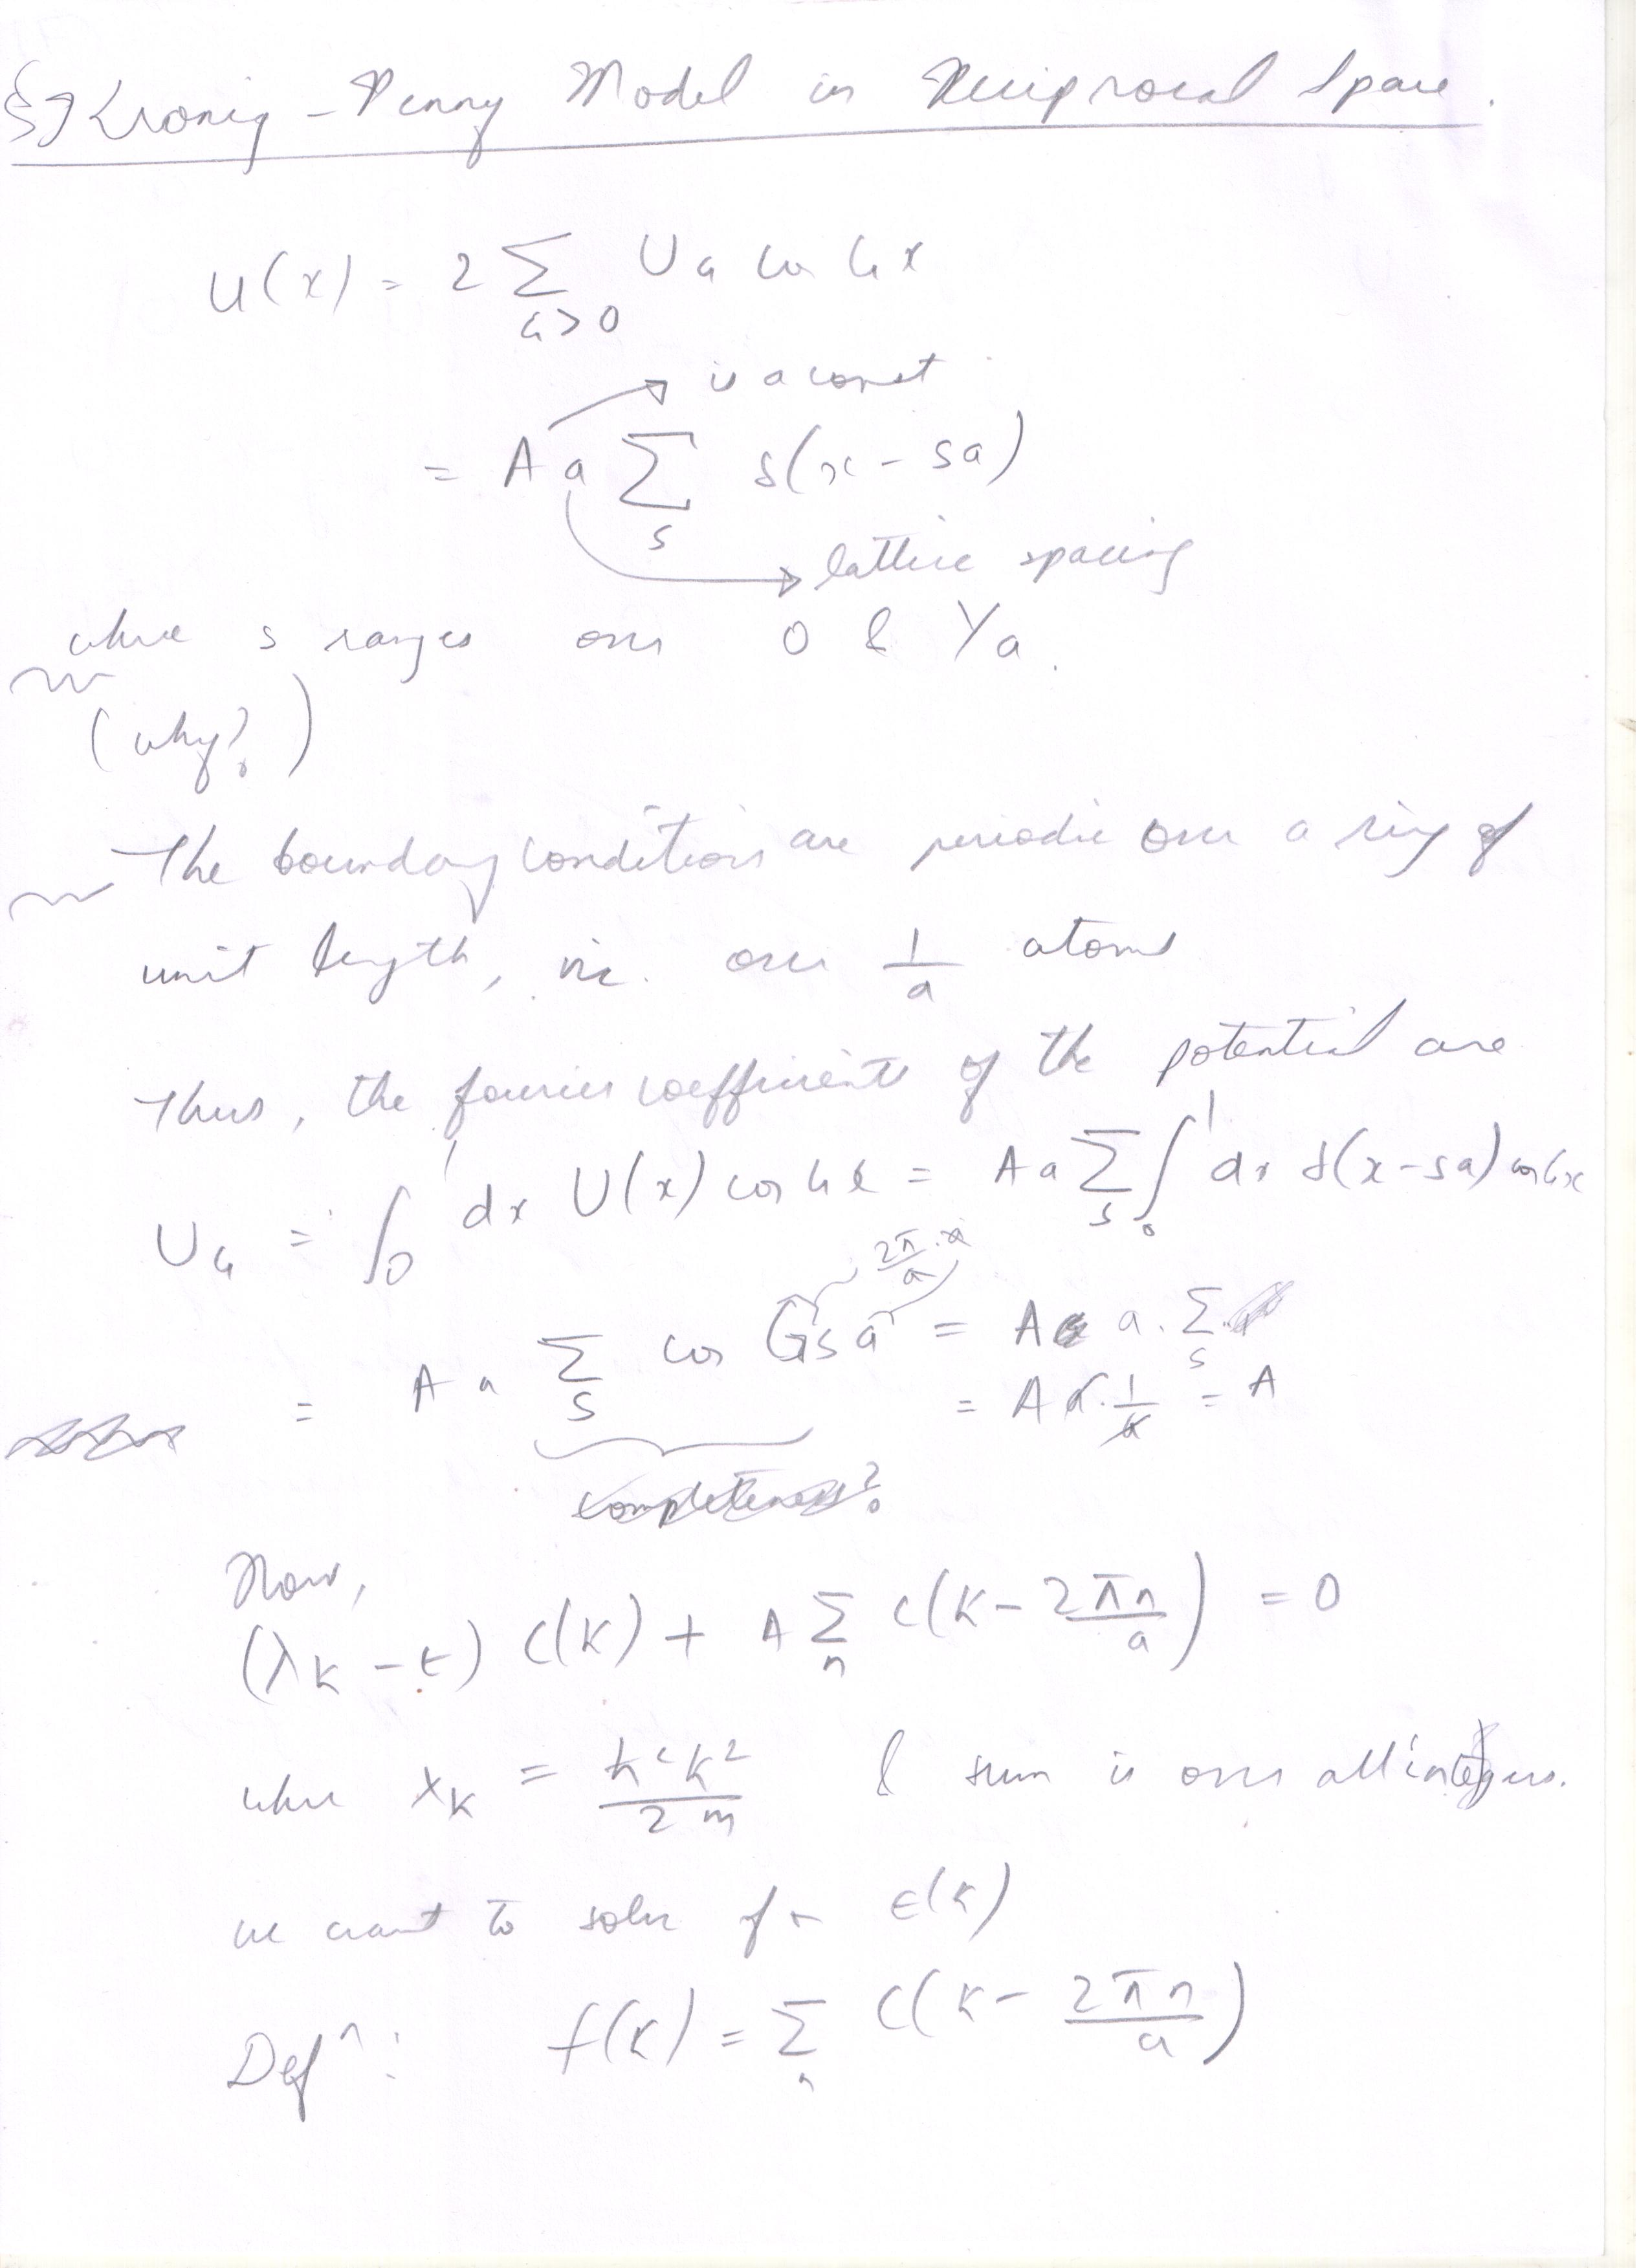 §] Kronig - Penny Model in Reciprocal Space.
U(x) = 2 Σ_{G>0} U_G cos Gx
→ is a const
= A a Σ_s δ(x - sa)
→ lattice spacing
where s ranges over 0 & 1/a.
(why?)
The boundary conditions are periodic over a ring of
unit length, ie. over 1/a atoms
Thus, the fourier coefficients of the potential are
U_G = ∫_0^1 dx U(x) cos Gx = A a Σ_s ∫_0^1 dx δ(x-sa) cos Gx
2π/a · a
= A a Σ_s cos Gsa = A a · Σ_s
= A a · 1/a = A
completeness?
Now,
(λ_K - ϵ) C(K) + A Σ_n C(K - 2πn/a) = 0
where λ_K = ħ²K²/2m & sum is over all integers.
we want to solve for ϵ(K)
Defⁿ: f(K) = Σ_n C(K - 2πn/a)